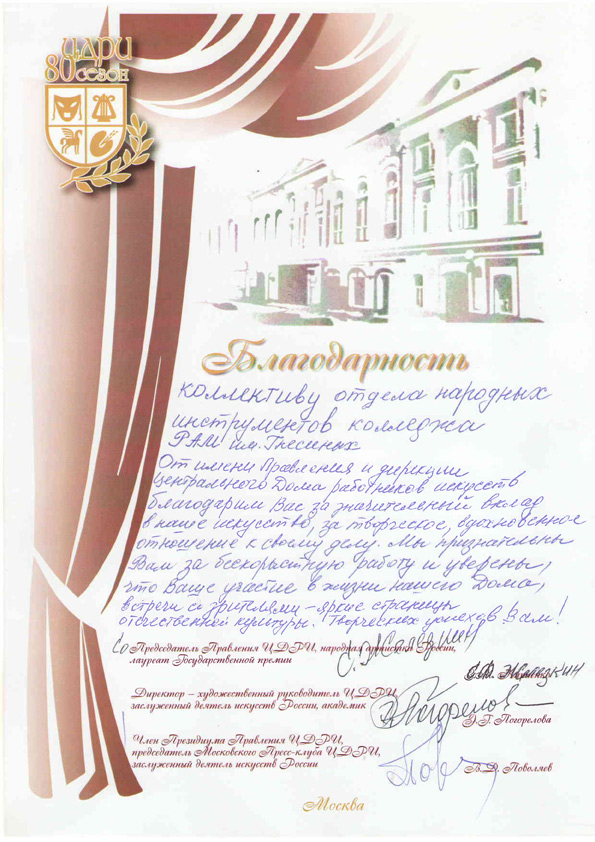 ЦДРИ
80 сезон
Благодарность
коллективу отдела народных
инструментов колледжа
РАМ им. Гнесиных
От имени Правления и дирекции
Центрального Дома работников искусств
благодарим Вас за значительный вклад
в наше искусство, за творческое, вдохновенное
отношение к своему делу. Мы признательны
Вам за бескорыстную работу и уверены,
что Ваше участие в жизни нашего Дома,
встречи со зрителями – яркие страницы
отечественной культуры. Творческих успехов Вам!
Председатель Правления ЦДРИ, народная артистка России,
лауреат Государственной премии
Жилязкин
Директор – художественный руководитель ЦДРИ
заслуженный деятель искусств России, академик
Погорелов
Э.Г. Погорелова
Член Президиума Правления ЦДРИ,
председатель Московского Пресс-клуба ЦДРИ,
заслуженный деятель искусств России
В.Д. Поволяев
Москва